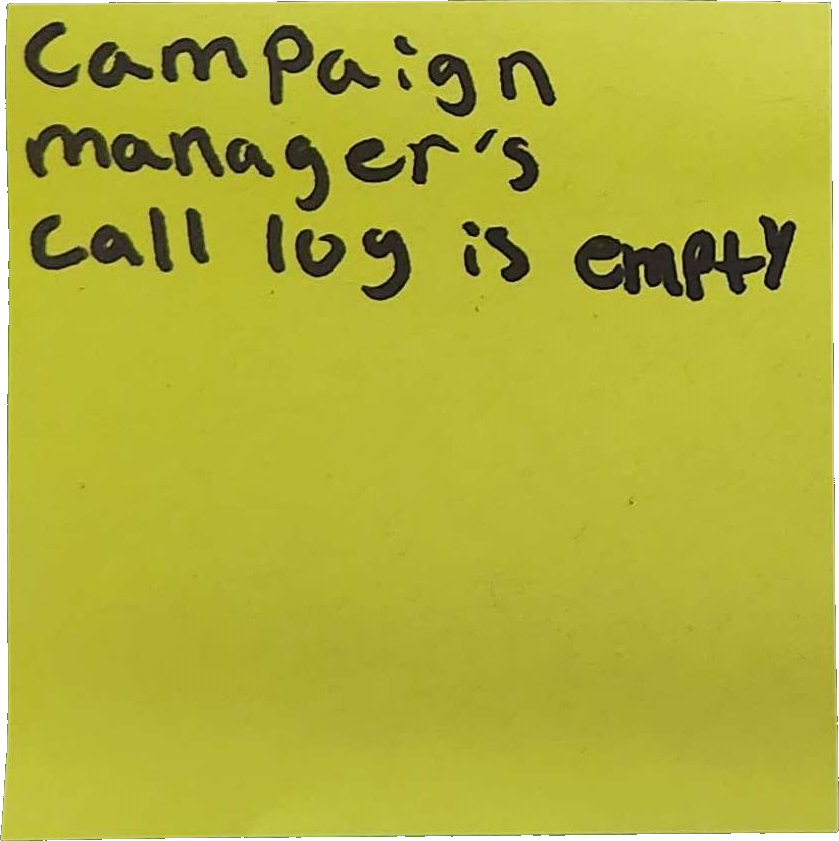 Campaign
manager's
call log is empty